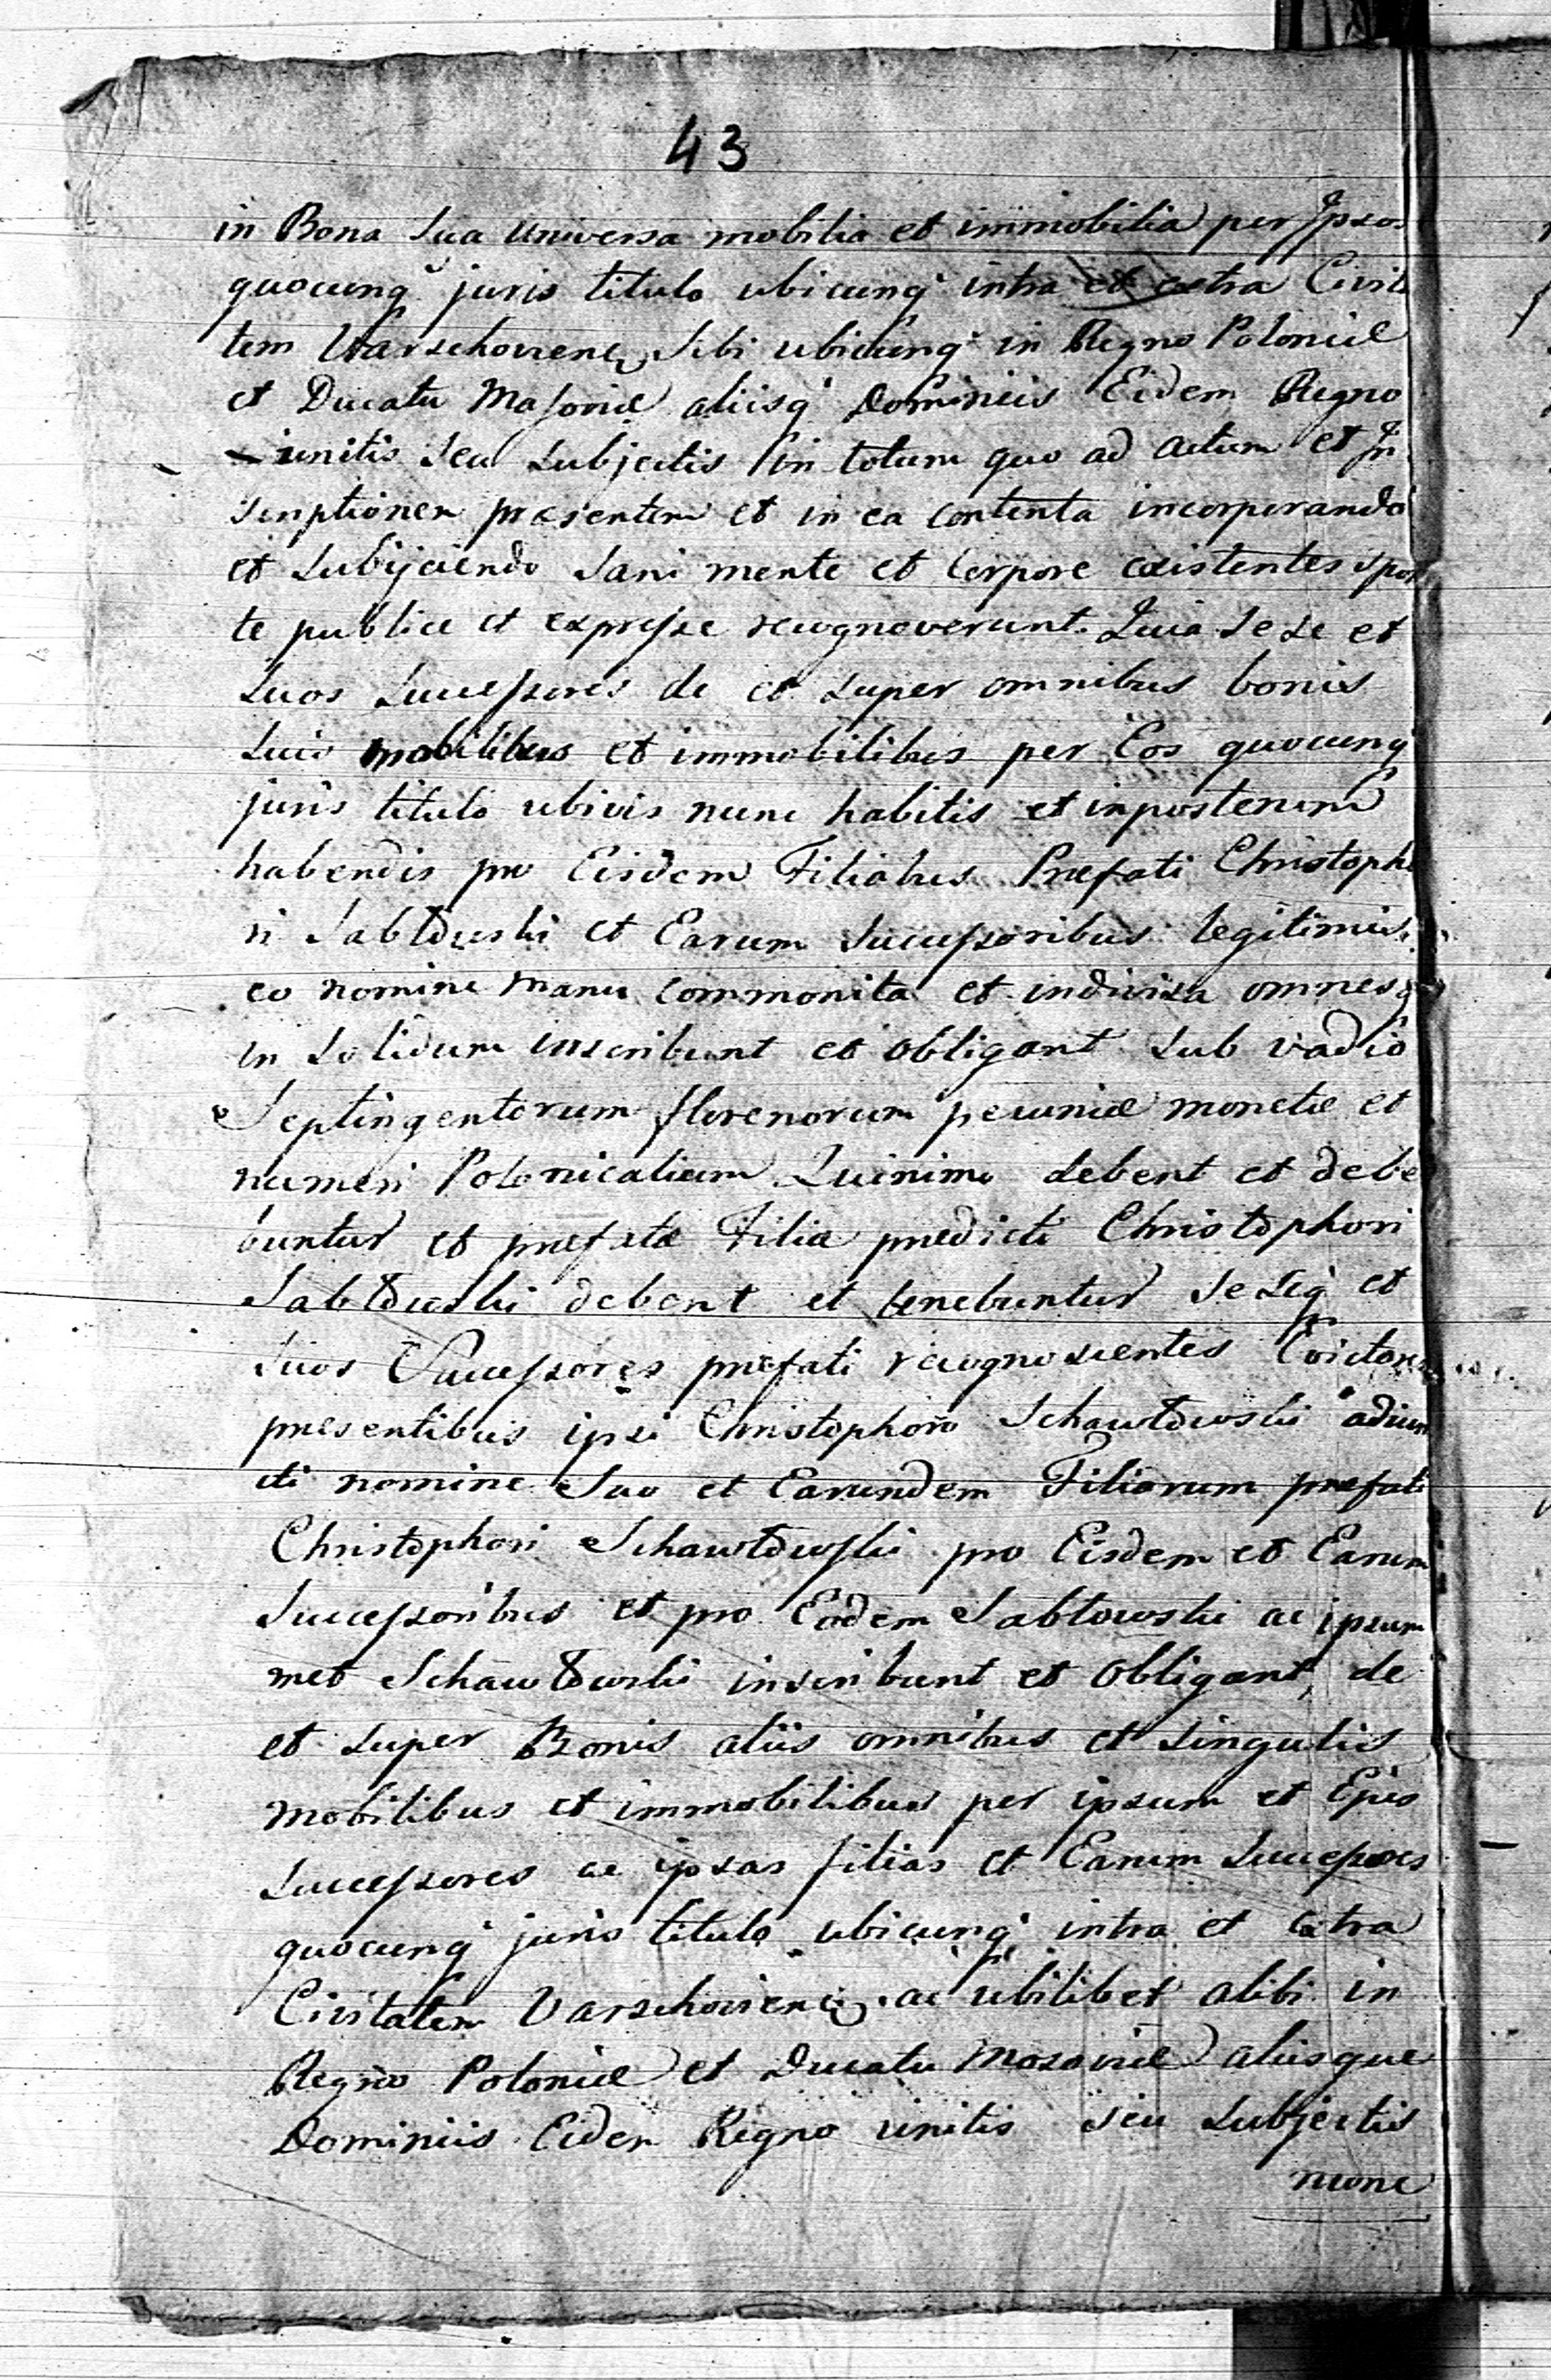 43
in Bona Sua universa mobilia et immobilia per Ipsos
quocunq' juris titulo ubicunq' intra et extra Civita
tem Varschovienc̄ Sibi ubicunq' in Regno Poloniæ
et Ducatu Masoviæ aliisq' Dominiis Eidem Regno
unitis Seu Subjectis in totum quo ad actum et In
scriptionem præsentem et in ea contenta incorporando
et Subijciendo Sani mente et Corpore existentes spon
te publice et expresse recognoverunt. Quia Sese et
Suos Successores de et Super omnibus bonis
Suis mobilibus et immobilibus per Eos quocunq'
juris titulo ubivis nunc habitis et inposterum
habendis pro Eisdem Filiabus Præfati Christopho
ri Sabłowski et Earum Successoribus legitimis
eo nomine manu commonita et indivisa omnes
in Solidum inscribunt et obligant Sub vadio
Septingentorum florenorum pecuniæ monetæ et
numeri Polonicalium Quinimo debent et debe
buntur et præfatæ Filiæ prædicti Christophori
Sabłowski debent et tenebuntur Seseq' et
Suos Successores præfati recognoscentes
præsentibus ipsi Christophoro Schawłowski adiun
cti nomine Suo et Earundem Filiarum præfati
Christophori Schawłowski pro Eisdem et Earum
Successoribus et pro Eodem Sabłowski ac ipsum
met Schawłowski inscribunt et obligant, de
et Super Bonis aliis omnibus et Singulis
mobilibus et immobilibus per ipsum et Ejus
Successores ac ipsas filias et Earum Successores
quocunq' juris titulo ubicunq' intra et extra
Civitatem Varschovienc̄ ac ubilibet alibi in
Regno Poloniæ et Ducatu Masoviæ aliisque
Dominiis Eidem Regno unitis Seu Subjectis
nunc